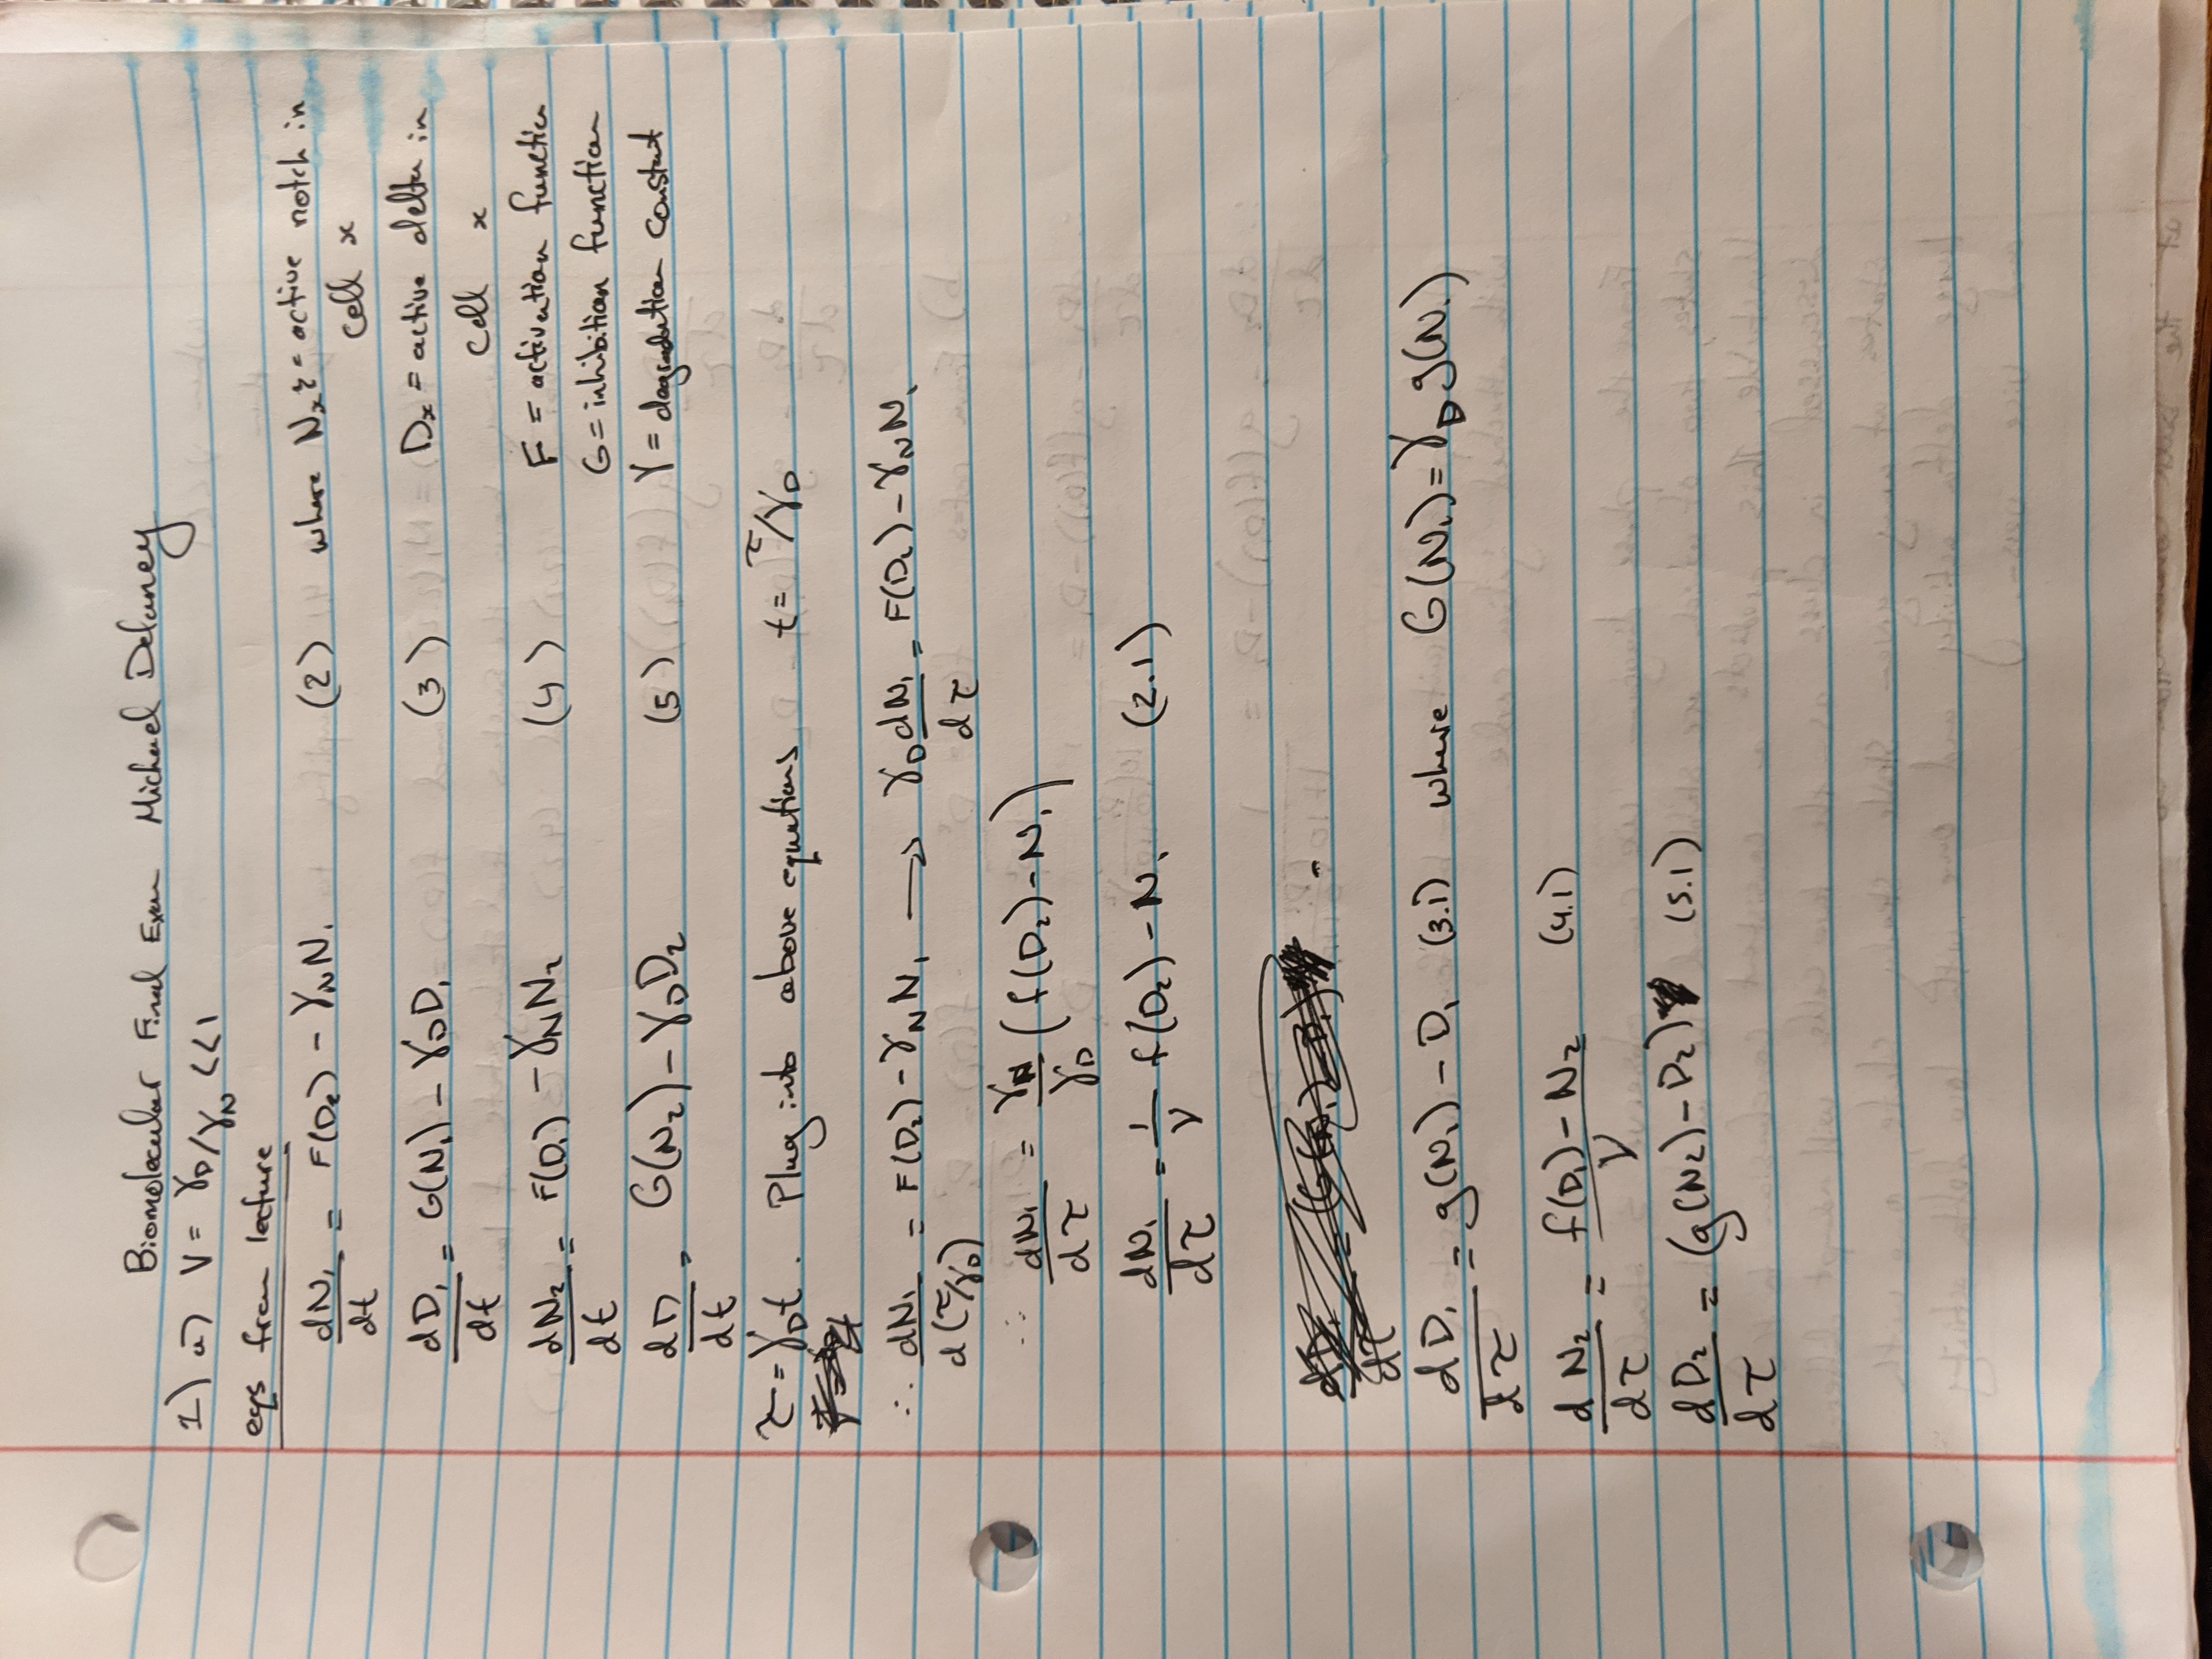 Biomolecular Final Exam Michael Delaney
1) a) V = γD/γN <<1
eqs from lecture
dN₁/dt = F(D₂) - γNN₁ (2) where Nx = active notch in
cell x
dD₁/dt = G(N₁) - γDD₁ (3) Dx = active delta in
cell x
dN₂/dt = F(D₁) - γNN₂ (4) F = activation function
G = inhibition function
dD/dt = G(N₂) - γDD₂ (5) γ = degradation constant
τ = γDt. Plug into above equations t = τ/γD
∴ dN₁/d(τ/γD) = F(D₂) - γNN₁ → γD dN₁/dτ = F(D₂) - γNN₁
∴ dN₁/dτ = γN/γD (f(D₂) - N₁)
dN₁/dτ = 1/V f(D₂) - N₁ (2.1)
dD₁/dτ = g(N₁) - D₁ (3.1) where G(N₁) = γD g(N₁)
dN₂/dτ = f(D₁) - N₂/V (4.1)
dD₂/dτ = (g(N₂) - D₂) (5.1)